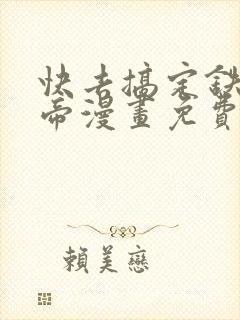 快去搞定鉄
帝漫畫免費
賴美戀